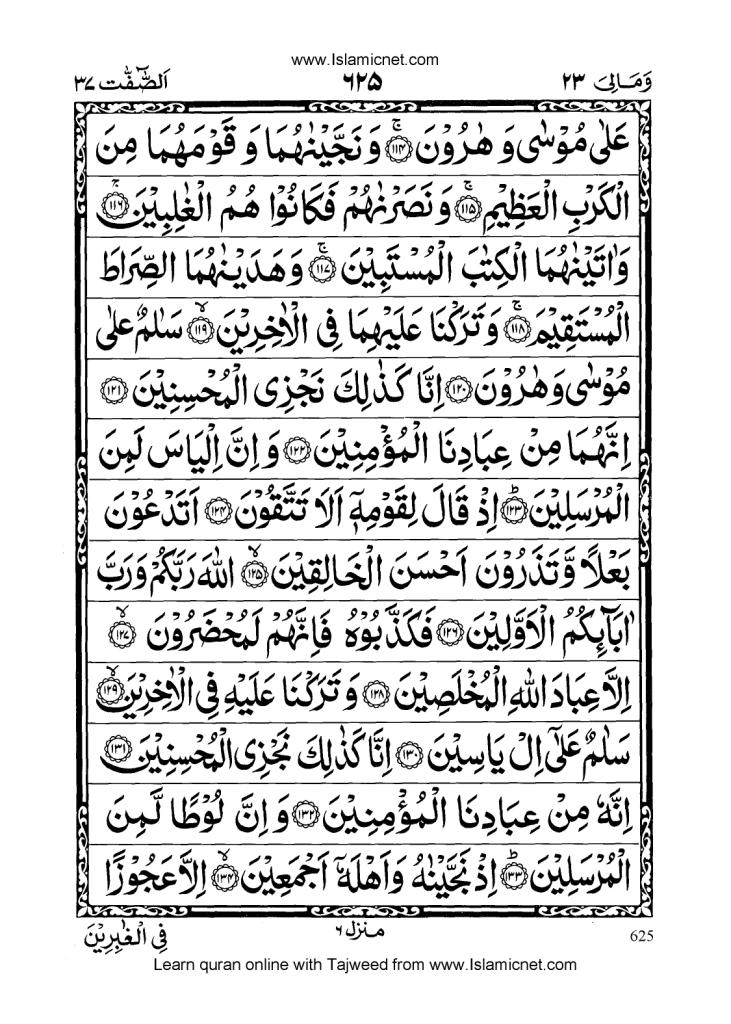 www.Islamicnet.com
وَمَالِیَ ٢٣ ٦٢٥ اَلصّٰٓفّٰت ٣٧
عَلٰى مُوْسٰى وَ هٰرُوْنَ ﴿١١٤﴾ۚ وَ نَجَّيْنٰهُمَا وَ قَوْمَهُمَا مِنَ
الْكَرْبِ الْعَظِيْمِ ﴿١١٥﴾ۚ وَ نَصَرْنٰهُمْ فَكَانُوْا هُمُ الْغٰلِبِيْنَ ﴿١١٦﴾ۚ
وَاٰتَيْنٰهُمَا الْكِتٰبَ الْمُسْتَبِيْنَ ﴿١١٧﴾ۚ وَهَدَيْنٰهُمَا الصِّرَاطَ
الْمُسْتَقِيْمَ ﴿١١٨﴾ۚ وَتَرَكْنَا عَلَيْهِمَا فِى الْاٰخِرِيْنَ ﴿١١٩﴾ۙ سَلٰمٌ عَلٰى
مُوْسٰى وَهٰرُوْنَ ﴿١٢٠﴾ اِنَّا كَذٰلِكَ نَجْزِى الْمُحْسِنِيْنَ ﴿١٢١﴾
اِنَّهُمَا مِنْ عِبَادِنَا الْمُؤْمِنِيْنَ ﴿١٢٢﴾ وَ اِنَّ اِلْيَاسَ لَمِنَ
الْمُرْسَلِيْنَ ﴿١٢٣﴾ؕ اِذْ قَالَ لِقَوْمِهٖٓ اَلَا تَتَّقُوْنَ ﴿١٢٤﴾ اَتَدْعُوْنَ
بَعْلًا وَّتَذَرُوْنَ اَحْسَنَ الْخَالِقِيْنَ ﴿١٢٥﴾ۙ اللهَ رَبَّكُمْ وَرَبَّ
اٰبَآئِكُمُ الْاَوَّلِيْنَ ﴿١٢٦﴾ فَكَذَّبُوْهُ فَاِنَّهُمْ لَمُحْضَرُوْنَ ﴿١٢٧﴾ۙ
اِلَّا عِبَادَ اللهِ الْمُخْلَصِيْنَ ﴿١٢٨﴾ وَ تَرَكْنَا عَلَيْهِ فِى الْاٰخِرِيْنَ ﴿١٢٩﴾ۙ
سَلٰمٌ عَلٰٓى اِلْ يَاسِيْنَ ﴿١٣٠﴾ اِنَّا كَذٰلِكَ نَجْزِى الْمُحْسِنِيْنَ ﴿١٣١﴾
اِنَّهٗ مِنْ عِبَادِنَا الْمُؤْمِنِيْنَ ﴿١٣٢﴾ وَ اِنَّ لُوْطًا لَّمِنَ
الْمُرْسَلِيْنَ ﴿١٣٣﴾ؕ اِذْ نَجَّيْنٰهُ وَاَهْلَهٗٓ اَجْمَعِيْنَ ﴿١٣٤﴾ۙ اِلَّا عَجُوْزًا
فِى الْغٰبِرِيْنَ منزل ٦ 625
Learn quran online with Tajweed from www.Islamicnet.com